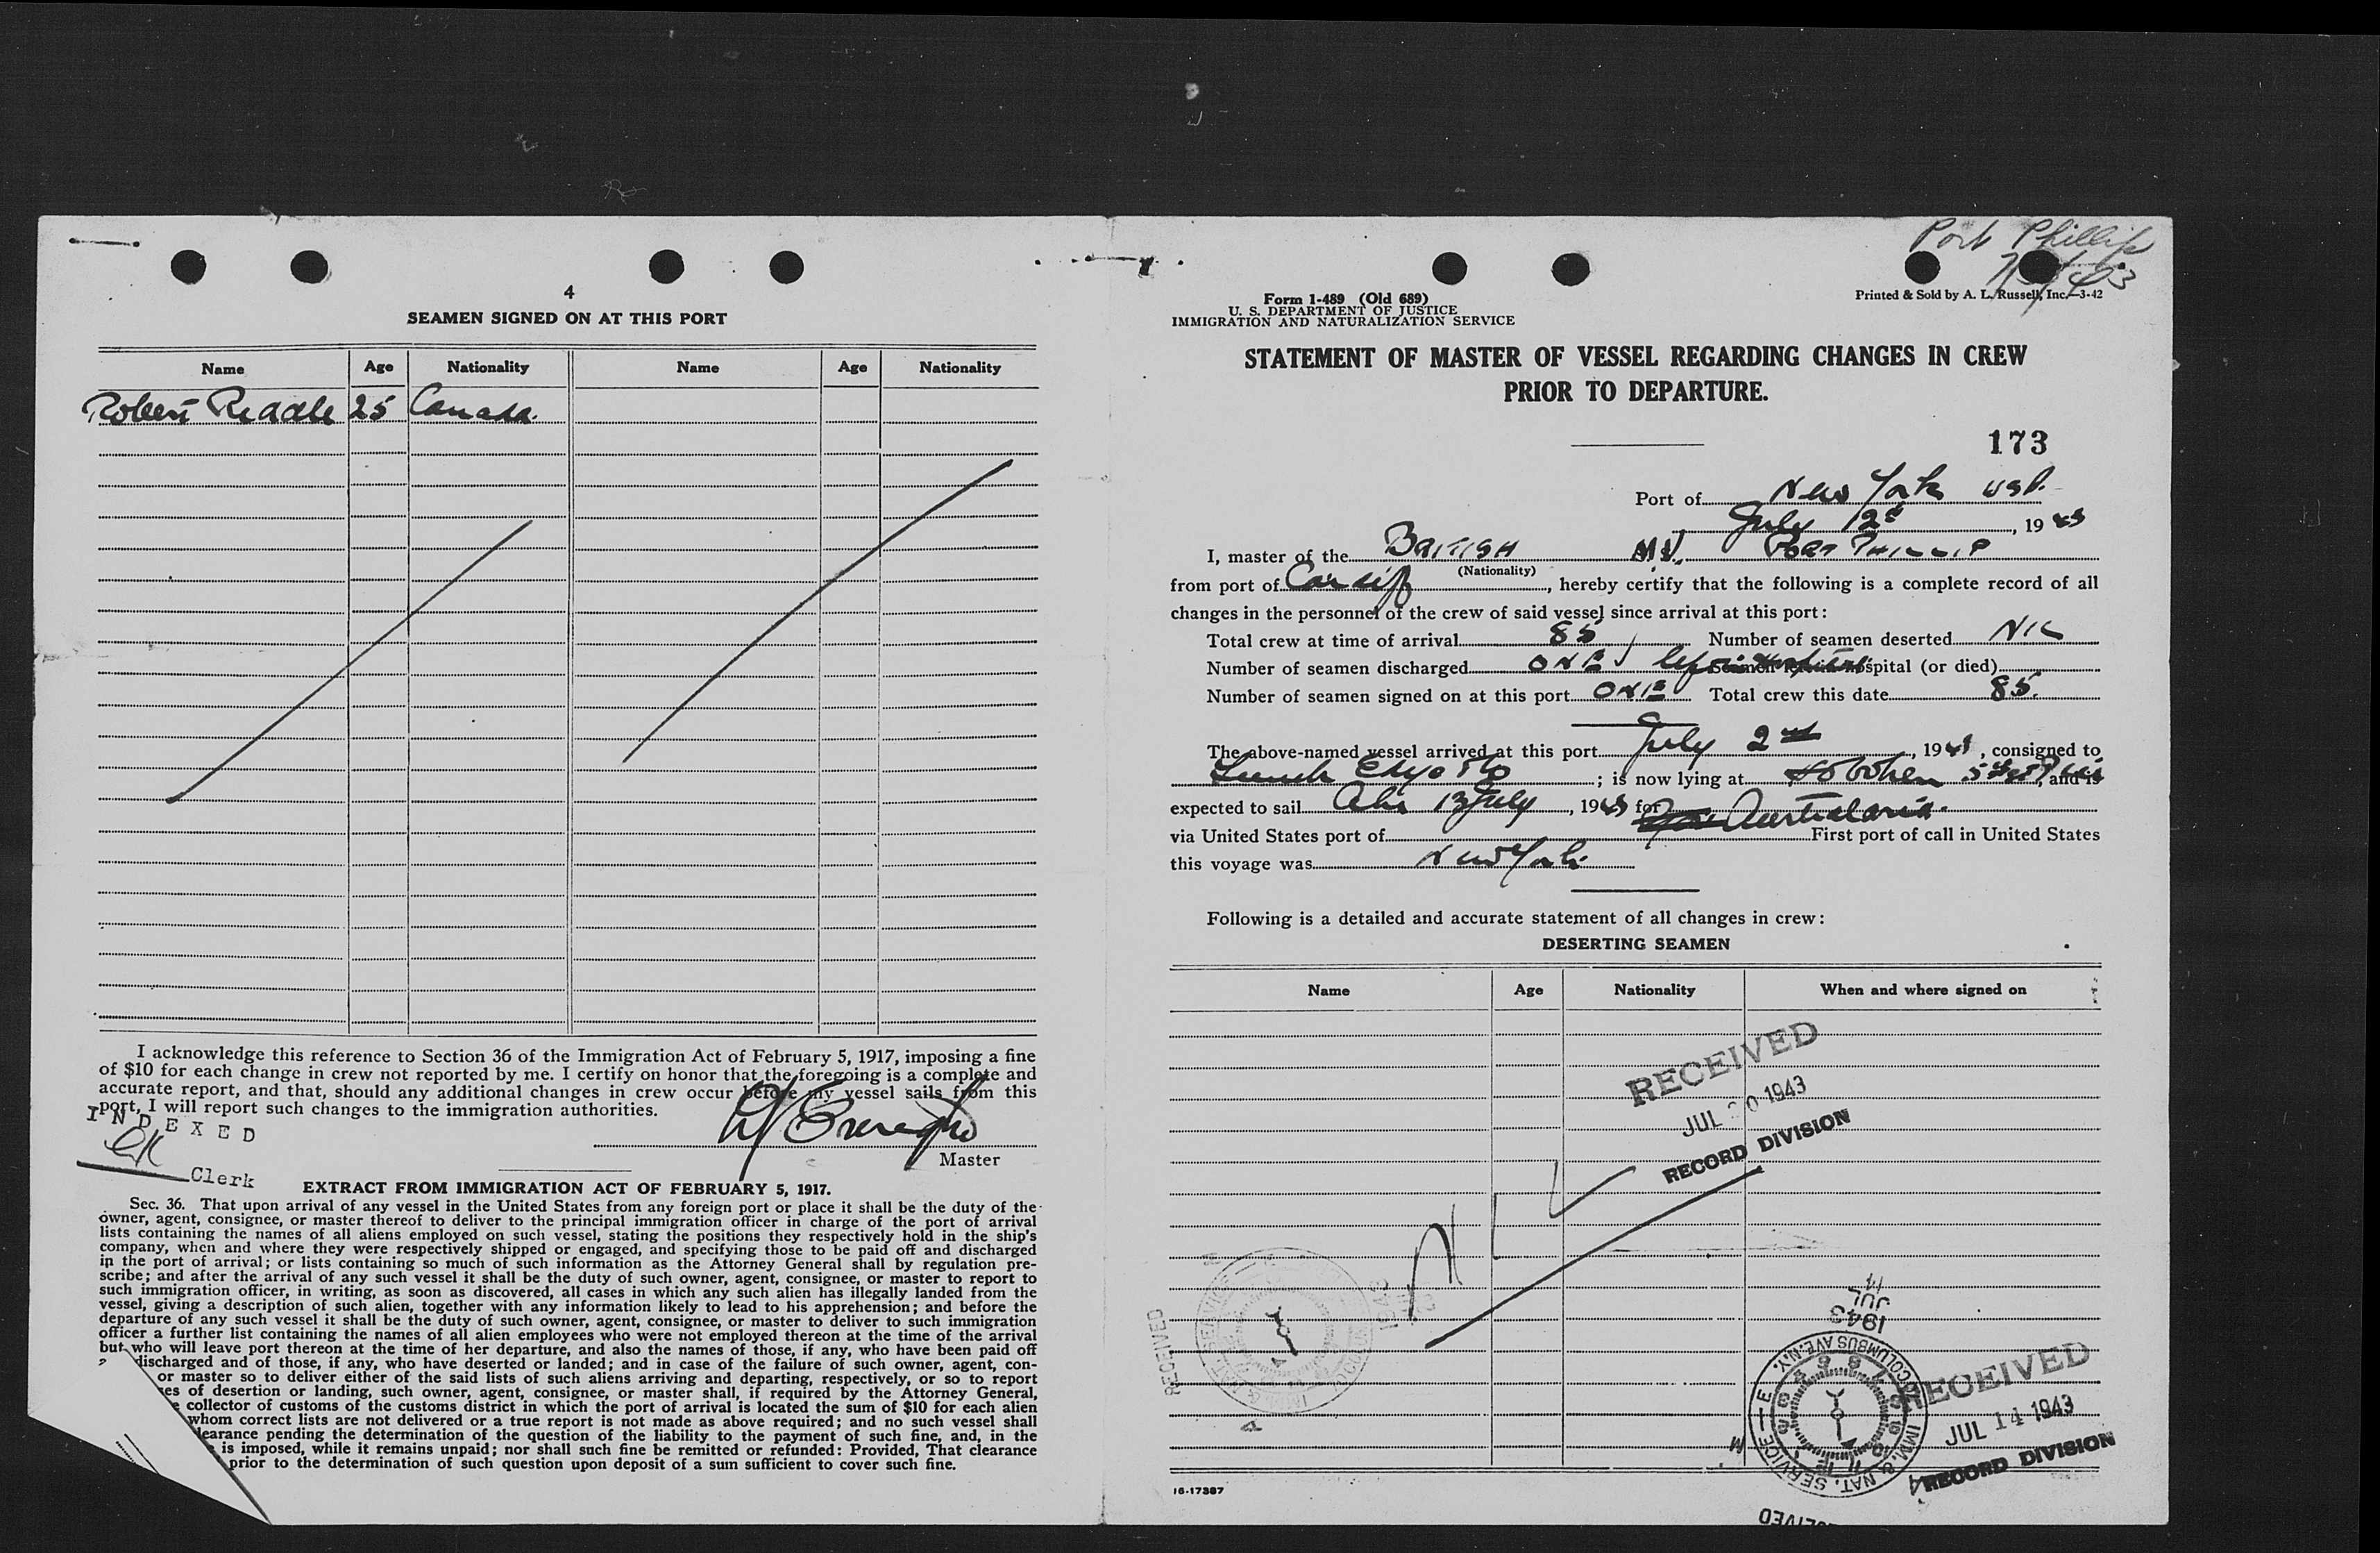 4
SEAMEN SIGNED ON AT THIS PORT
Name Age Nationality Name Age Nationality
Robert Riddle 25 Canada.
I acknowledge this reference to Section 36 of the Immigration Act of February 5, 1917, imposing a fine
of $10 for each change in crew not reported by me. I certify on honor that the foregoing is a complete and
accurate report, and that, should any additional changes in crew occur before my vessel sails from this
port, I will report such changes to the immigration authorities.
INDEXED
Master
Clerk
EXTRACT FROM IMMIGRATION ACT OF FEBRUARY 5, 1917.
Sec. 36. That upon arrival of any vessel in the United States from any foreign port or place it shall be the duty of the
owner, agent, consignee, or master thereof to deliver to the principal immigration officer in charge of the port of arrival
lists containing the names of all aliens employed on such vessel, stating the positions they respectively hold in the ship's
company, when and where they were respectively shipped or engaged, and specifying those to be paid off and discharged
in the port of arrival; or lists containing so much of such information as the Attorney General shall by regulation pre-
scribe; and after the arrival of any such vessel it shall be the duty of such owner, agent, consignee, or master to report to
such immigration officer, in writing, as soon as discovered, all cases in which any such alien has illegally landed from the
vessel, giving a description of such alien, together with any information likely to lead to his apprehension; and before the
departure of any such vessel it shall be the duty of such owner, agent, consignee, or master to deliver to such immigration
officer a further list containing the names of all alien employees who were not employed thereon at the time of the arrival
but who will leave port thereon at the time of her departure, and also the names of those, if any, who have been paid off
discharged and of those, if any, who have deserted or landed; and in case of the failure of such owner, agent, con-
or master so to deliver either of the said lists of such aliens arriving and departing, respectively, or so to report
es of desertion or landing, such owner, agent, consignee, or master shall, if required by the Attorney General,
collector of customs of the customs district in which the port of arrival is located the sum of $10 for each alien
whom correct lists are not delivered or a true report is not made as above required; and no such vessel shall
learance pending the determination of the question of the liability to the payment of such fine, and, in the
is imposed, while it remains unpaid; nor shall such fine be remitted or refunded: Provided, That clearance
prior to the determination of such question upon deposit of a sum sufficient to cover such fine.
Port Phillip
Form 1-489 (Old 689)
U. S. DEPARTMENT OF JUSTICE
IMMIGRATION AND NATURALIZATION SERVICE
Printed & Sold by A. L. Russell, Inc.—3-42
STATEMENT OF MASTER OF VESSEL REGARDING CHANGES IN CREW
PRIOR TO DEPARTURE.
173
Port of New York USA.
July 12th, 1943
I, master of the BRITISH M.V. PORT PHILLIP
(Nationality)
from port of Cardiff, hereby certify that the following is a complete record of all
changes in the personnel of the crew of said vessel since arrival at this port:
Total crew at time of arrival 85 Number of seamen deserted NIL
Number of seamen discharged ONE Seamen left in hospital (or died)
Number of seamen signed on at this port ONE Total crew this date 85.
The above-named vessel arrived at this port July 2nd, 1943, consigned to
; is now lying at Hoboken 5th St Pier, and is
expected to sail 13 July, 1943 for Australasia.
via United States port of First port of call in United States
this voyage was New York
Following is a detailed and accurate statement of all changes in crew:
DESERTING SEAMEN
Name Age Nationality When and where signed on
RECEIVED
JUL 20 1943
RECORD DIVISION
NIL
RECEIVED
1943
JUL
14
COLUMBUS AVE. N.Y.
IMM. & NAT. SERVICE
RECEIVED
JUL 14 1943
RECORD DIVISION
16-17387
RECEIVED